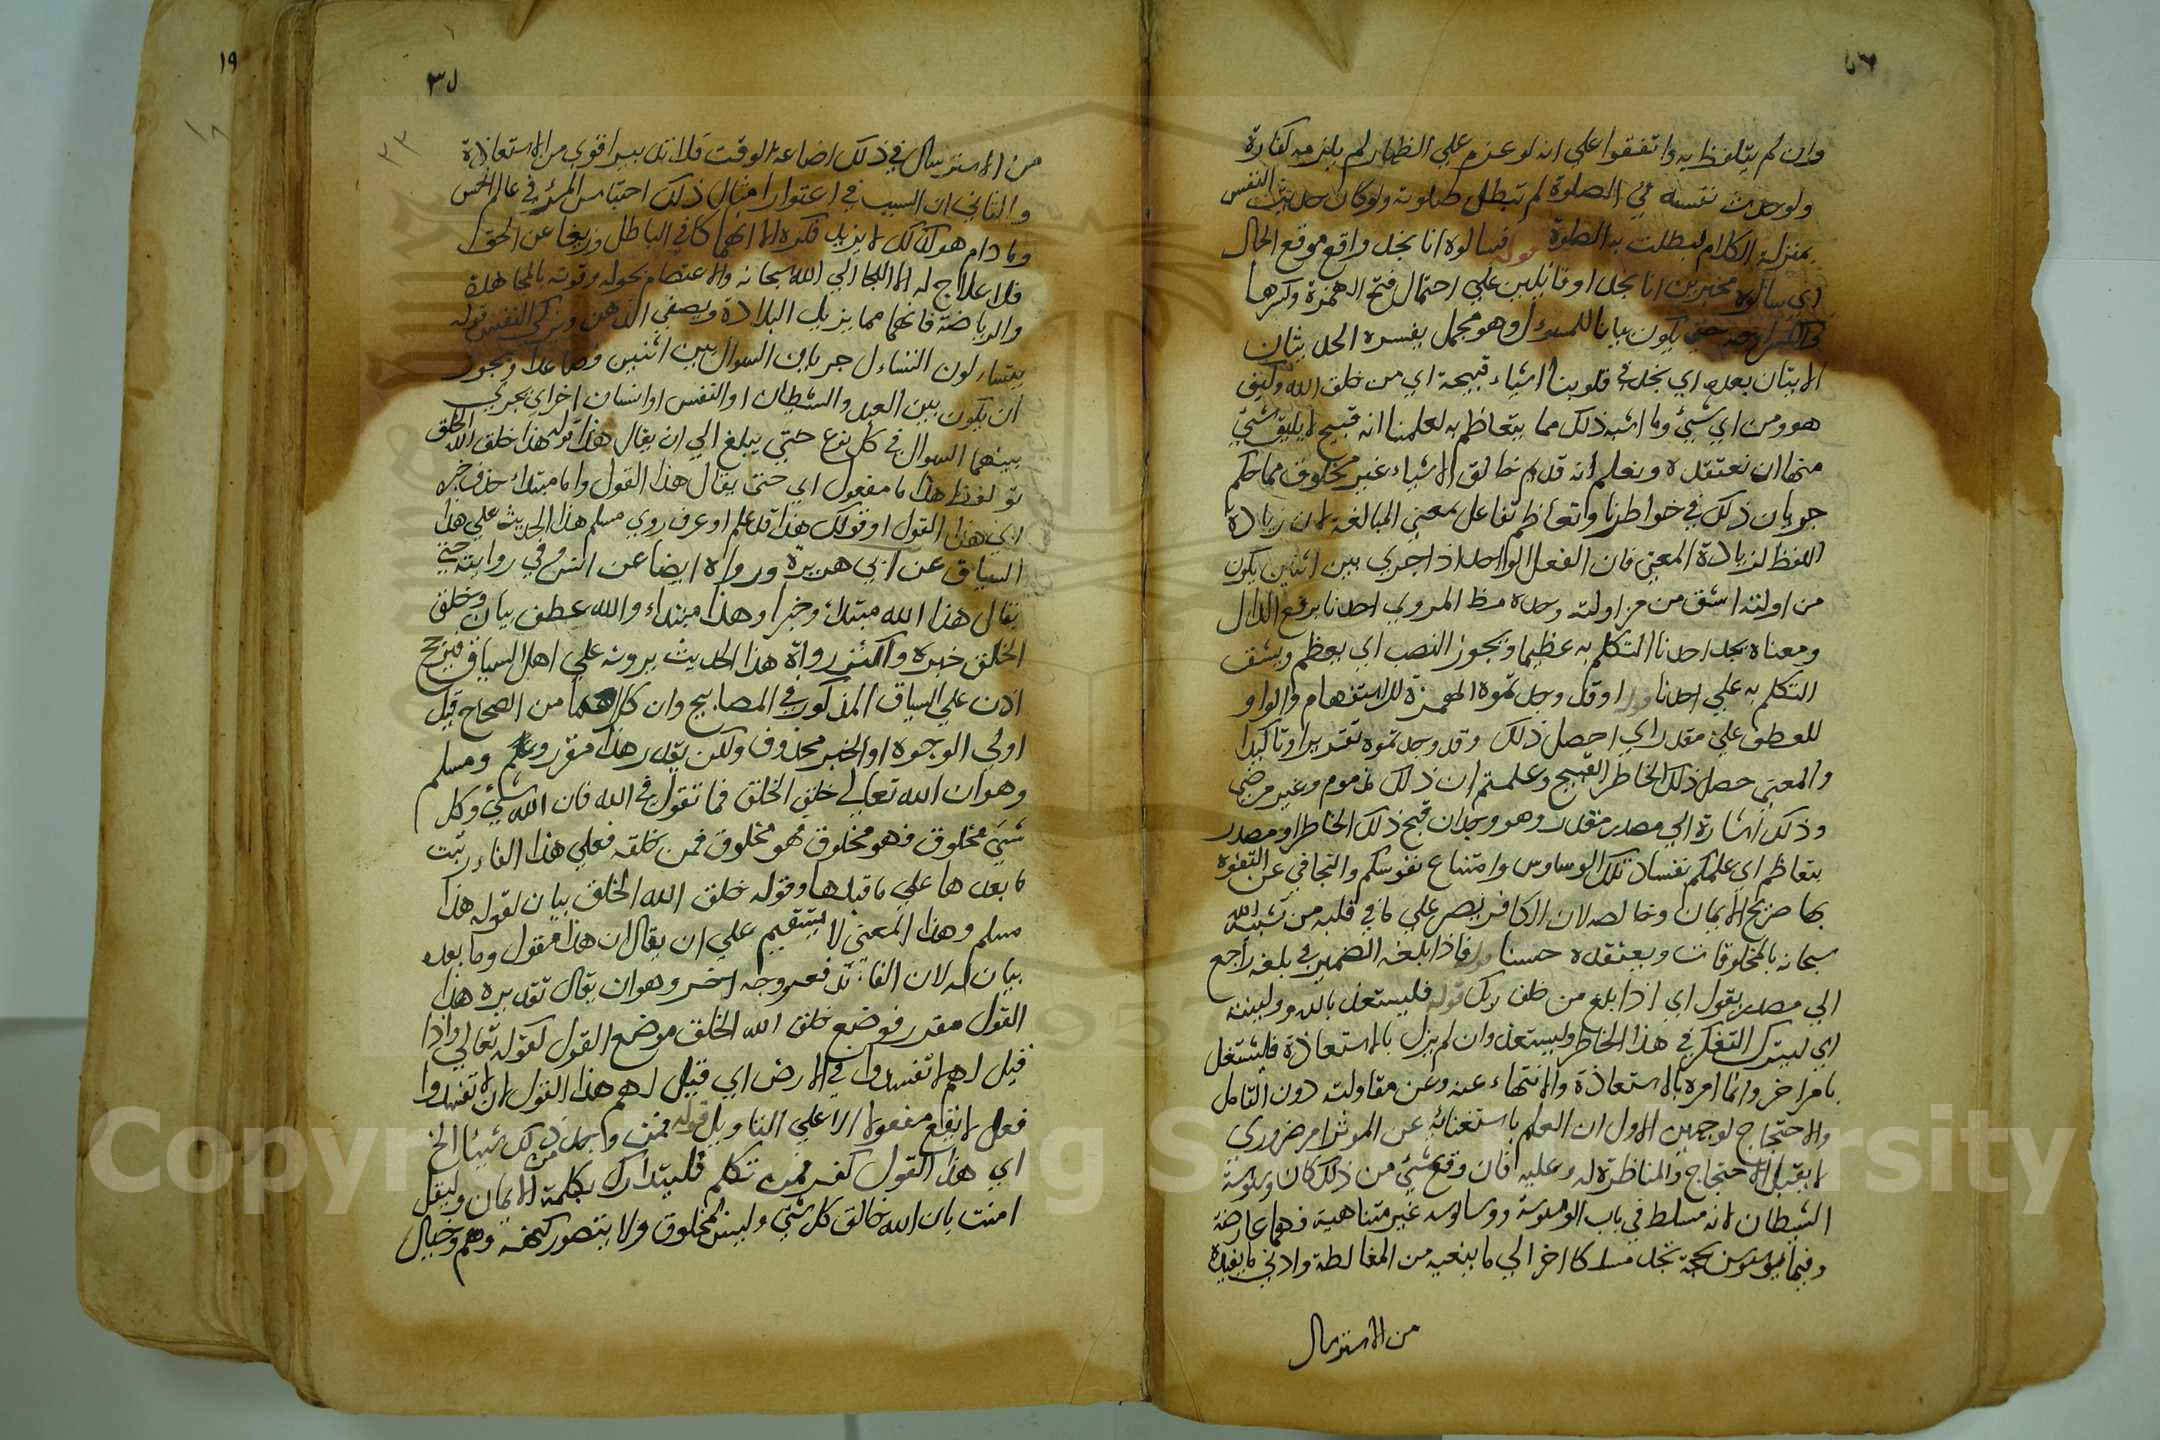 وان لم يتلفظ به واتفقوا علي انه لو عزم علي الظهار لم يلزمه كفارة
ولو حدث نفسه في الصلوة لم تبطل صلوته ولو كان حديث النفس
بمنزلة الكلام لبطلت به الصلوة قوله فسالوه انا نجد واقع موقع الحال
اي سالوه مخبرين انا نجد او قائلين علي احتمال فتح الهمزة وكسرها
والكسر اوجه حتي يكون بيانا للمسوول وهو مجمل يفسره الحديثان
الاتيان بعده اي نجد في قلوبنا اشياء قبيحة اي من خلق الله وكيف
هو ومن اي شيئ وما اشبه ذلك مما يتعاظم به لعلمنا انه قبيح لا يليق شيئ
منها ان نعتقده ونعلم انه قديم خالق الاشياء غير مخلوق فما حكم
جريان ذلك في خواطرنا وتعاظم تفاعل بمعني المبالغة لان زيادة
اللفظ لزيادة المعني فان الفعل الواحد اذا جري بين اثنين يكون
من اولته اشق من مزاولته وحده مظ المروي احدنا برفع الدال
ومعناه يجد احدنا التكلم به عظيما ويجوز النصب اي يعظم ويشق
التكلم به علي احدنا قوله او قد وجدتموه الهمزة للاستفهام والواو
للعطف علي مقدر اي احصل ذلك وقد وجدتموه تقديرا وتاكيدا
والمعني حصل ذلك الخاطر القبيح وعلمتم ان ذلك مذموم وغير مرضي
وذلك اشارة الي مصدر مقدر وهو وجدان قبح ذلك الخاطر او مصدر
يتعاظم اي علمكم بفساد تلك الوساوس وامتناع نفوسكم والتجافي عن التفوه
بها صريح الايمان وخالصه لان الكافر يصر علي ما في قلبه من تشبيه الله
سبحانه بالمخلوقات ويعتقده حسنا قوله فاذا بلغه الضمير في بلغه راجع
الي مصدر يقول اي اذا بلغ من خلق ربك قوله فليستعذ بالله ولينته
اي ليترك التفكر في هذا الخاطر وليستعذ وان لم يزل بالاستعاذة فليشتغل
بامر اخر وانما امره بالاستعاذة والانتهاء عنه وعن مقاولته دون التامل
والاحتجاج لوجهين الاول ان العلم باستغنائه عن الموثر امر ضروري
لا يقبل الاحتجاج والمناظرة له وعليه فان وقع شيئ من ذلك كان وسوسة
الشيطان لانه مسلط في باب الوسوسة ووساوسه غير متناهية فمهما عارضه
وفيما يوسوس بحجة يجد مسلكا اخر الي ما يبتغيه من المغالطة وادني ما يفيده
من الاسترسال
من الاسترسال في ذلك اضاعة الوقت فلا تدبير اقوي من الاستعاذة
والثاني ان السبب في اعتوار امثال ذلك احتباس المرء في عالم الحس
وما دام هو كذلك لا يزيد فكره الا انهماكا في الباطل وزيغا عن الحق
فلا علاج له الا اللجا الي الله سبحانه والاعتصام بحوله وقوته بالمجاهدة
والرياضة فانهما مما يزيل البلادة ويصفي الذهن ويزكي النفس قوله
يتساءلون التساءل جريان السوال بين اثنين فصاعدا ويجوز
ان يكون بين العبد والشيطان او النفس او انسان اخر اي يجري
بينهما السوال في كل نوع حتي يبلغ الي ان يقال هذا قوله هذا خلق الله الخلق
تو لفظ هذا ما مفعول اي حتي يقال هذا القول واما مبتداء حذف خبره
اي هذا القول او قولك هذا قد علم او عرف روي مسلم هذا الحديث علي هذا
السياق عن ابي هريرة ورواه ايضا عن انس وفي روايته حتي
يقال هذا الله مبتداء وخبر او هذا مبتداء والله عطف بيان وخلق
الخلق خبره واكثر رواة هذا الحديث يروونه علي اهل السياق فيرجح
اذن علي السياق المذكور في المصابيح وان كلاهما من الصحاح قيل
اولي الوجوه او الخبر محذوف ولكن يقدر هذا مقرر وعلم ومسلم
وهو ان الله تعالي خلق الخلق فما تقول في الله فان الله شيئ وكل
شيئ مخلوق فهو مخلوق فهو مخلوق فمن خلقه فعلي هذا الفاء رتبت
ما بعدها علي ما قبلها وقوله خلق الله الخلق بيان لقوله هذا
مسلم وهذا المعني لا يستقيم علي ان يقال ان هذا مقول وما بعده
بيان له لان الفاء تدفعه ووجه اخر وهو ان يقال تقديره هذا
القول مقدر فوضع خلق الله الخلق موضع القول كقوله تعالي واذا
قيل لهم لا تفسدوا في الارض اي قيل لهم هذا القول ان لا تفسدوا
فعل لا يقع مفعولا الا علي التاويل قوله فمن وجد من ذلك شيئا الخ
اي هذا القول كفر فمن تكلم فليتدارك بكلمة الايمان وليقل
امنت بان الله خالق كل شيئ وليس بمخلوق ولا يتصور كنهه وهم وخيال
١٩
Copyright © King Saud University
1957